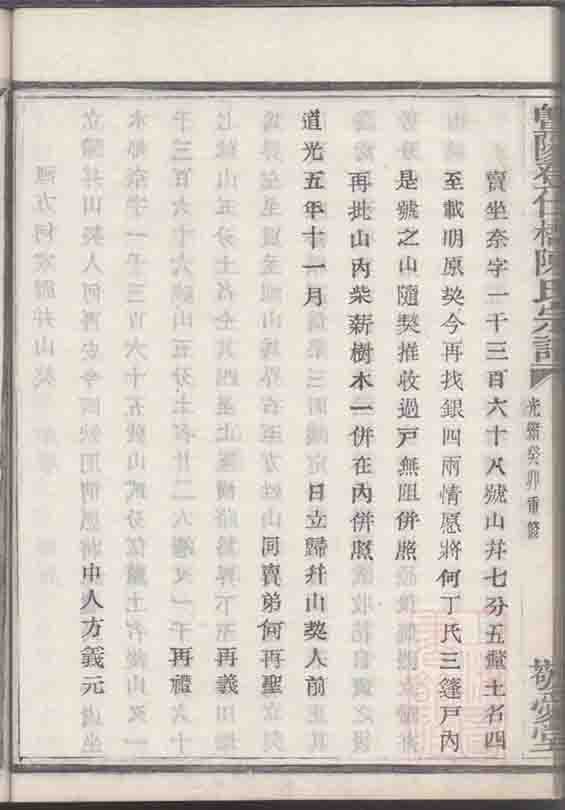 暨陽孝仁橋陳氏宗譜
光緒癸卯重修
敬愛堂
賣坐奈字一千三百六十八號山并七分五釐土名四
至載明原契今再找銀四兩情愿將何丁氏三篷戸內
是號之山隨契推收過戸無阻併照
再批山內柴薪樹木一併在內併照
道光五年十一月 日立歸并山契人前
同賣弟何再聖
再義
再禮
中人方義元